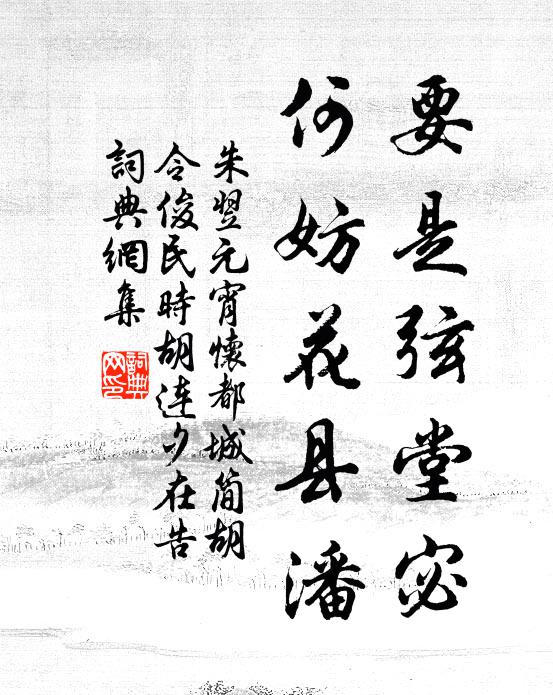 要是弦堂宓
何妨花县潘
朱翌元宵懷都城簡胡
令俊民時胡連夕在告
詞典網集
詞典
网印